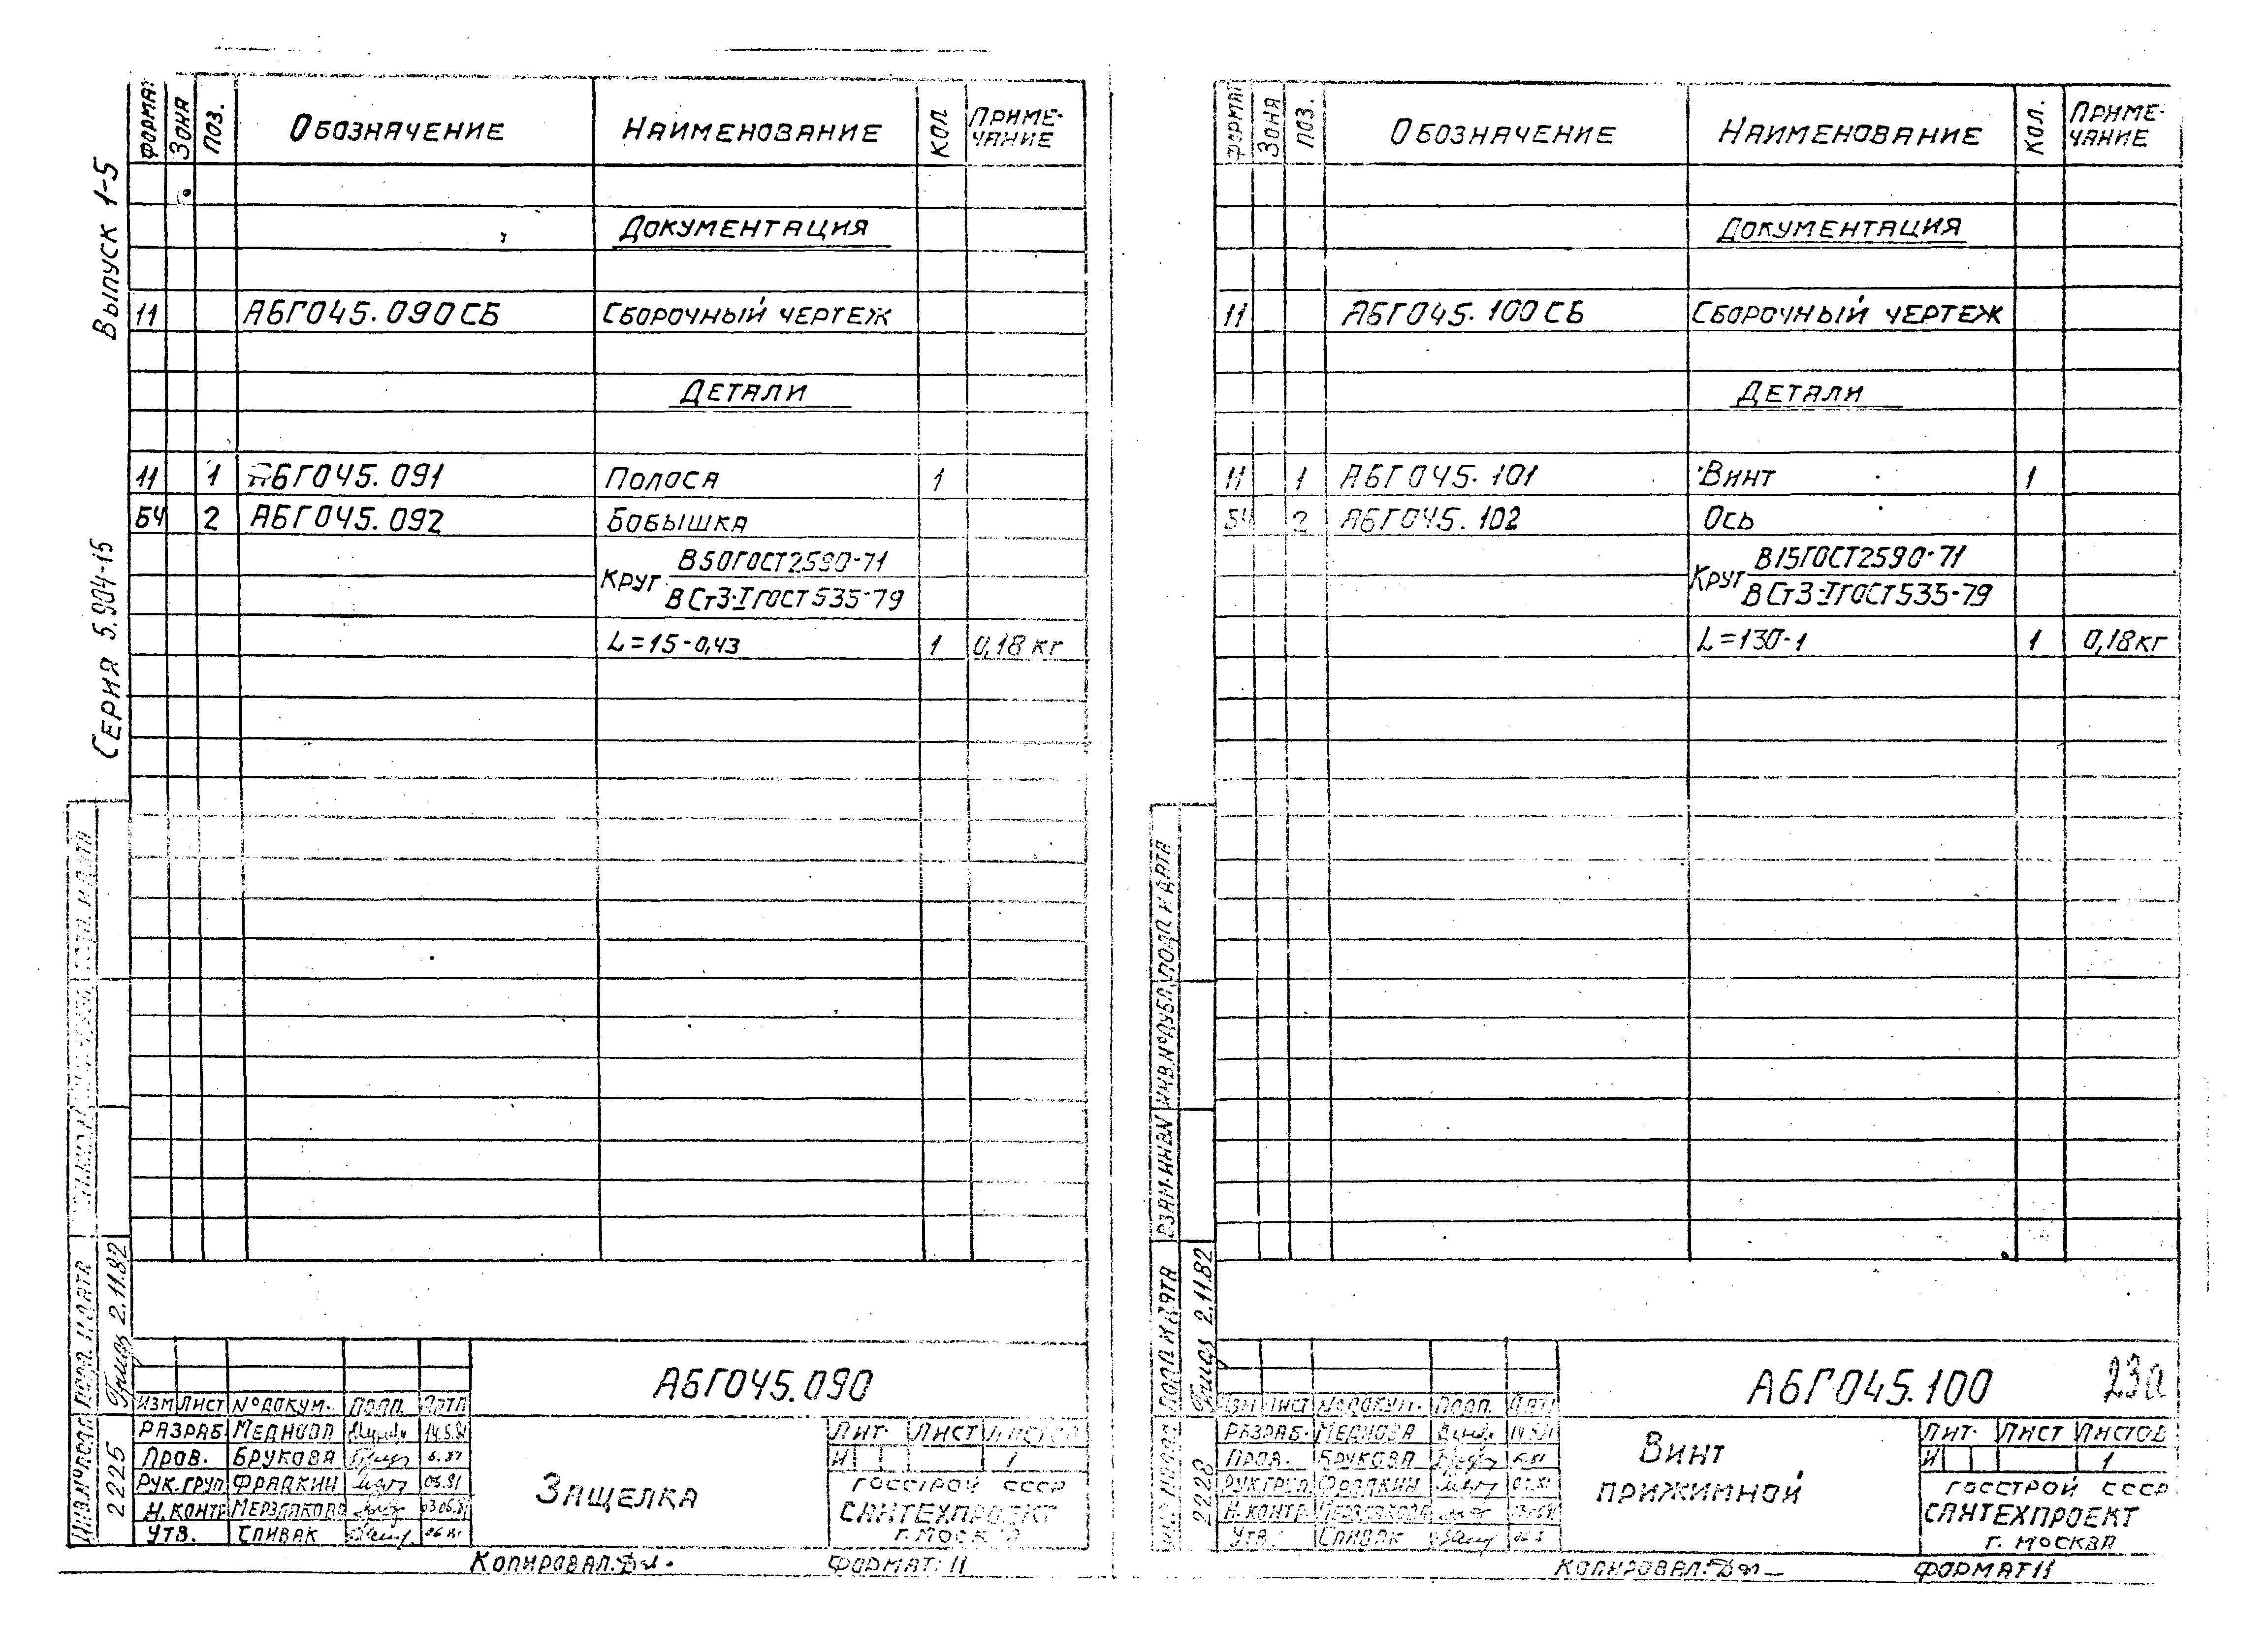 Выпуск 1-5
Серия 5.904-15
Формат Зона Поз. Обозначение Наименование Кол Приме-
чание
Документация
11 АБГ045.090СБ Сборочный чертеж
Детали
11 1 АБГ045.091 Полоса 1
БЧ 2 АБГ045.092 Бобышка
Круг В50ГОСТ2590-71
ВСт3-IГОСТ535-79
L=15-0,43 1 0,18 кг
Подп. и дата
Гриоз 2.11.82
Инв.№подл
2225
Изм Лист №докум. Подп. Дата
АБГ045.090
Разраб Меднова 14.5.81
Пров. Брукова 6.81
Рук.груп Фрадкин 06.81
Н.контр Мерзлякова 03.06.81
Утв. Спивак 06.81
Защелка
Лит. Лист Листов
И 1
Госстрой СССР
Сантехпроект
г. Москва
Копировал: Формат: 11
Формат Зона Поз. Обозначение Наименование Кол. Приме-
чание
Документация
11 АБГ045.100СБ Сборочный чертеж
Детали
11 1 АБГ045.101 Винт 1
БЧ 2 АБГ045.102 Ось
Круг В15ГОСТ2590-71
ВСт3-IГОСТ535-79
L=130-1 1 0,18кг
Подп и дата
Инв.№дубл
Взам.инв№
Подп и дата
2.11.82
2228
Изм Лист №докум. Подп. Дата
АБГ045.100
23а
Разраб. Меднова
Пров. Брукова
Рук.груп Фрадкин
Н.контр. Мерзлякова
Утв. Спивак
Винт
прижимной
Лит. Лист Листов
И 1
Госстрой СССР
Сантехпроект
г. Москва
Копировал: Формат 11